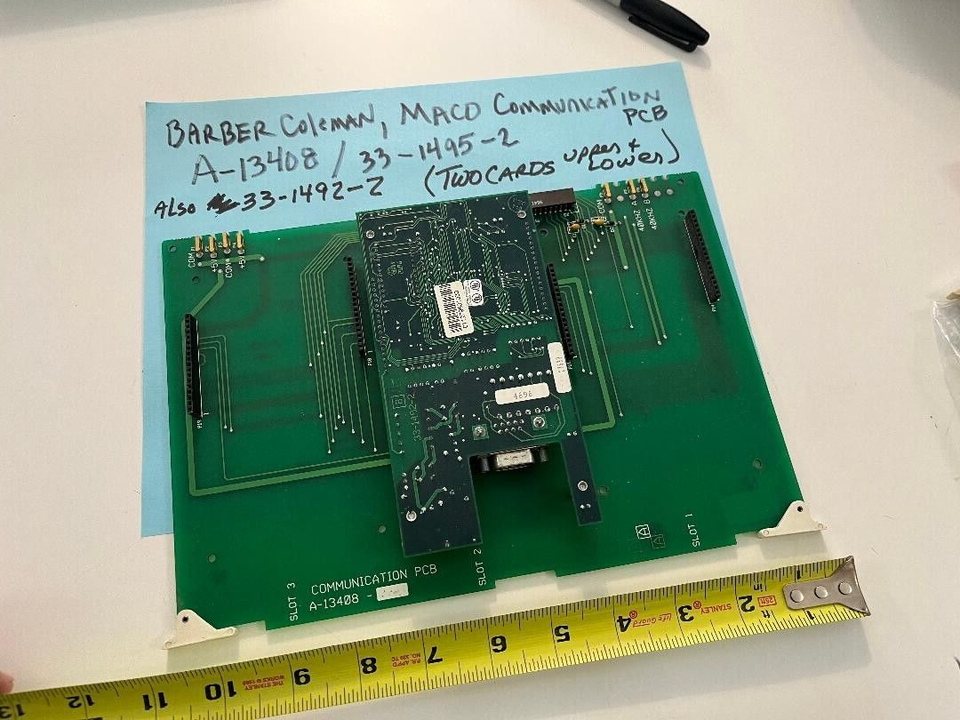 BARBER COLEMAN, MACO COMMUNICATION
PCB
A-13408 / 33-1495-2
ALSO 33-1492-2 (TWO CARDS UPPER +
LOWER)
COM
+5V
COM
+5V
COM
40KHZ A
40KHZ B
33-1492-2
B
4696
A
A
SLOT 3
SLOT 2
SLOT 1
COMMUNICATION PCB
A-13408 -
13 12 11 10 9 8 7 6 5 4 3 2 1
THE STANLEY
WORKS
Life Guard
STANLEY
1in
ft